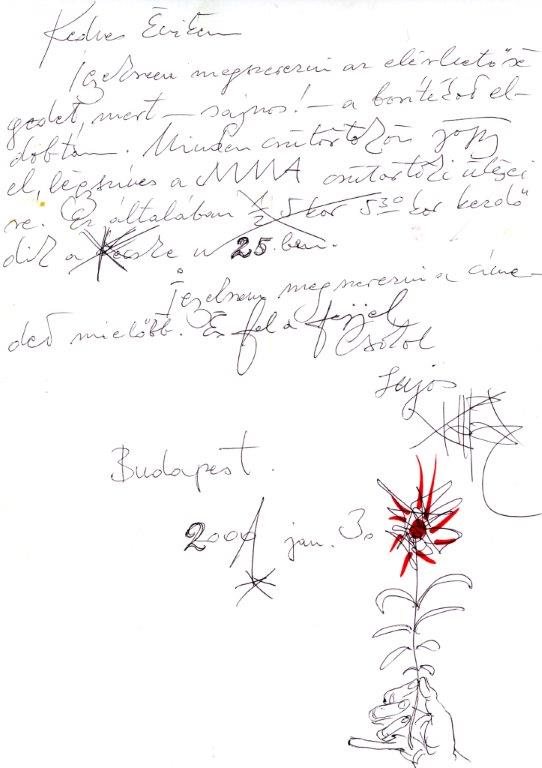 Kedves Évikém
Igyekszem megszerezni az elérhetősé-
gedet, mert – sajnos! – a borítékod el-
dobtam. Minden csütörtökön jöjj
el, légszíves a MMA csütörtöki ülései
re. Ez általában 1/2 5 kor 5 30 kor kezdő
dik a Kecske u 25.ben.
Igyekszem megszerezni a címe-
ded mielőbb. És fel a fejjel
Csókol
Lajos
Budapest.
200 jan. 30